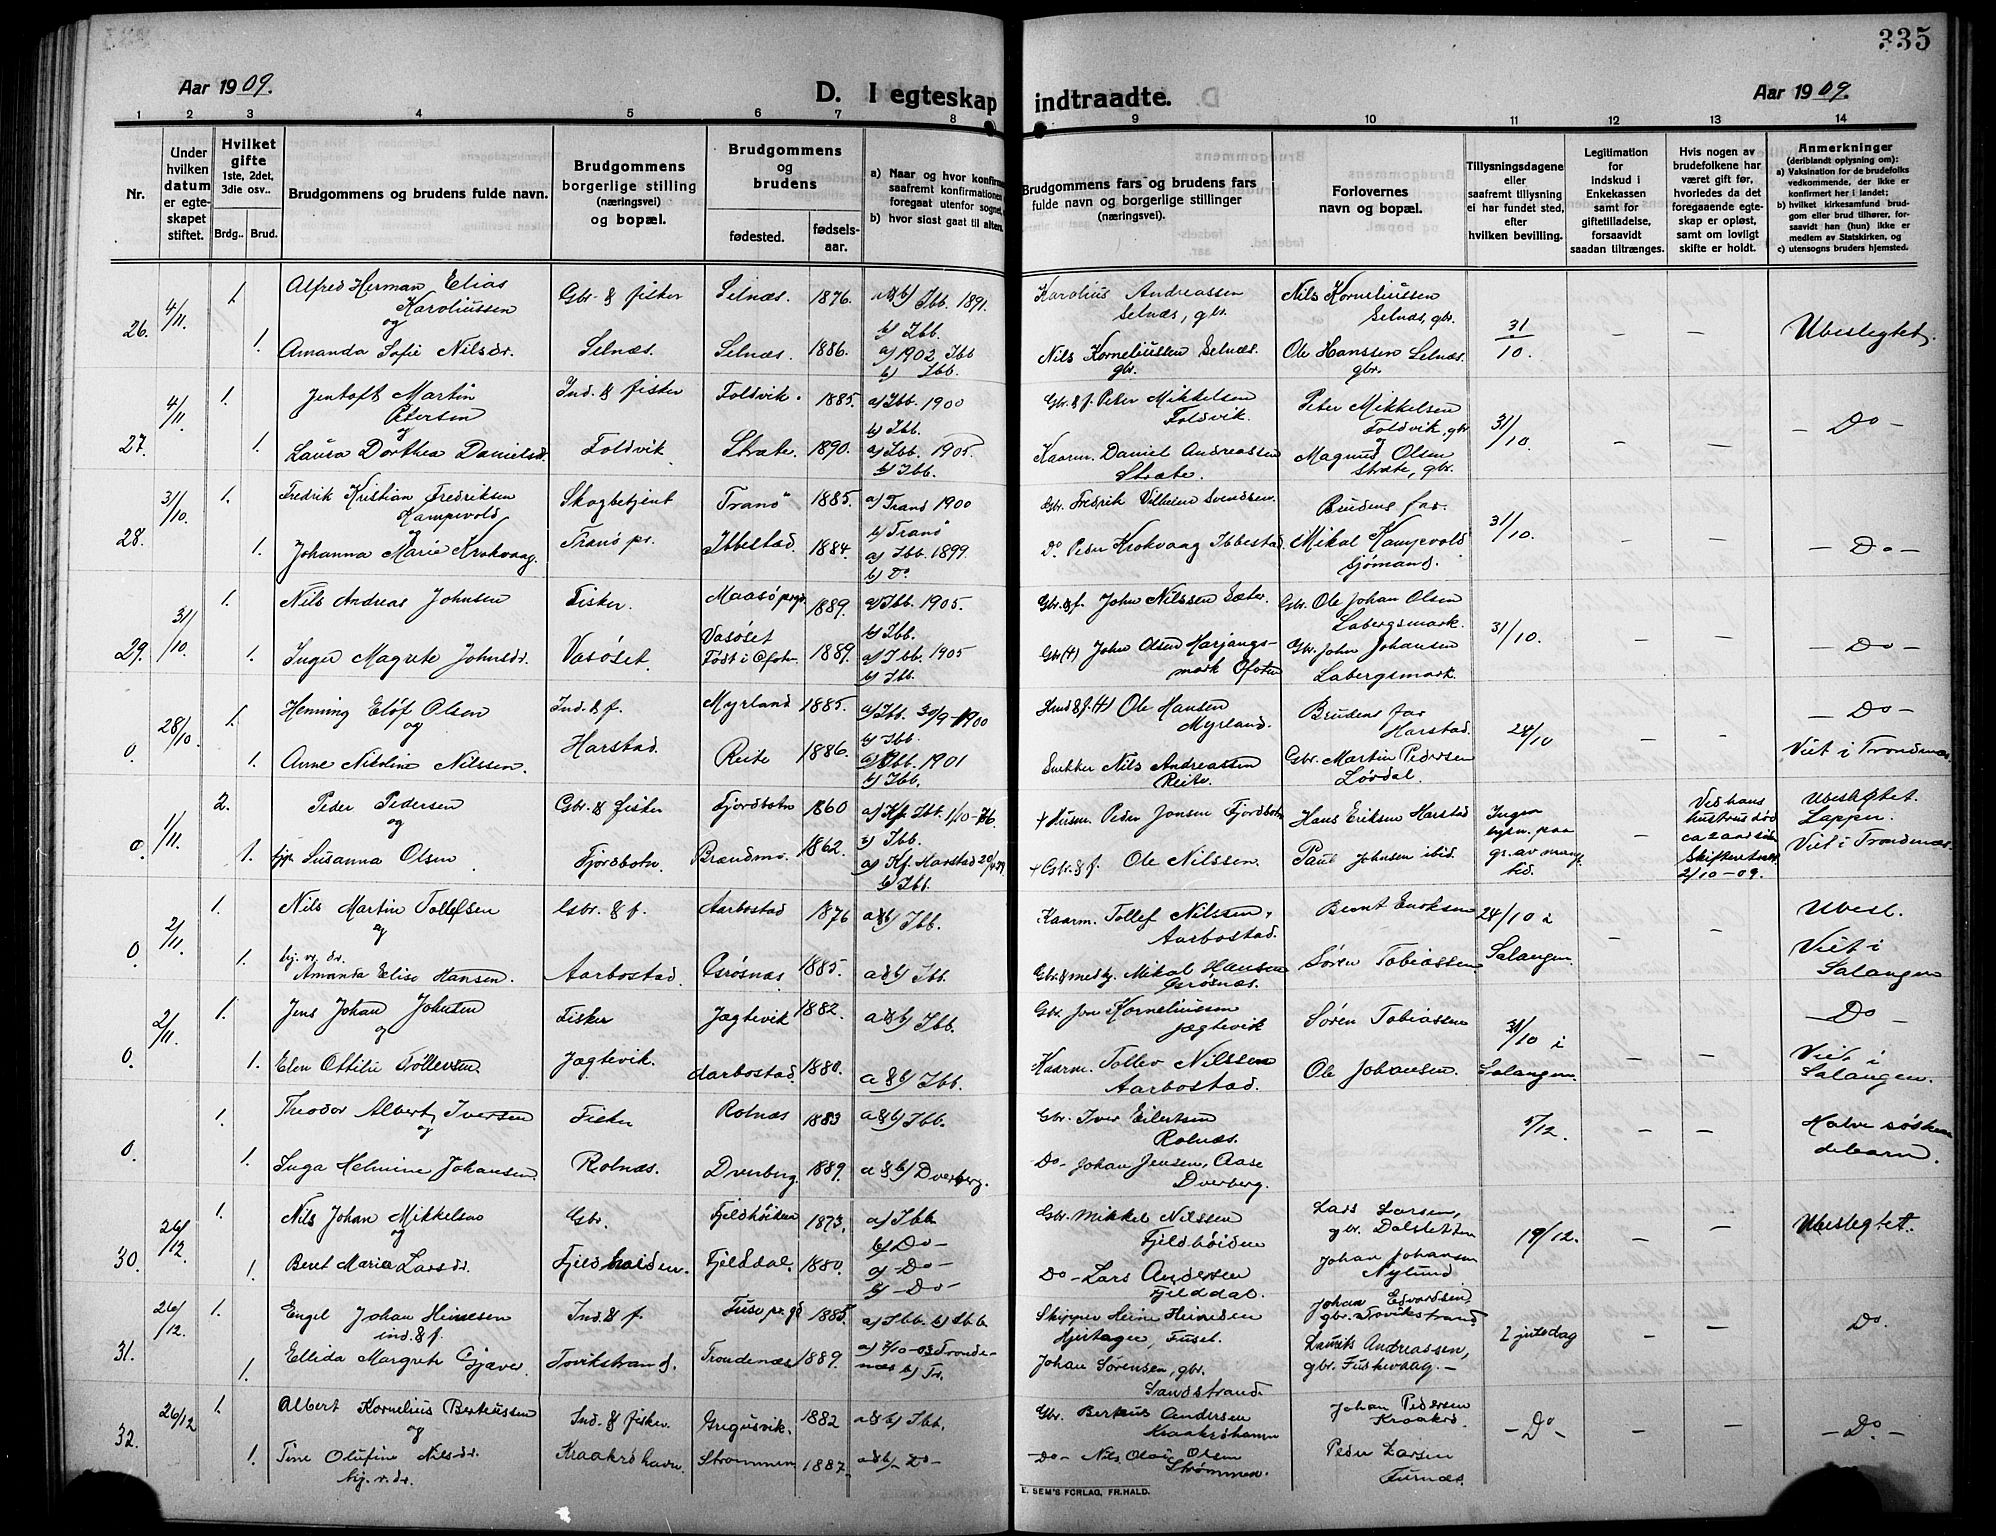 335
Aar 1909.
D. I egteskap indtraadte.
Aar 1909.
1 2 3 4 5 6 7 8 9 10 11 12 13 14
Nr.
Under hvilken datum er egte-skapet stiftet.
Hvilket gifte
1ste, 2det, 3die osv..
Brdg. Brud.
Brudgommens og brudens fulde navn.
Brudgommens borgerlige stilling (næringsvei) og bopæl.
Brudgommens og brudens
fødested. fødsels-aar.
a) Naar og hvor konfirm
saafremt konfirmationen
foregaat utenfor sognet,
b) hvor sidst gaat til alters
Brudgommens fars og brudens fars
fulde navn og borgerlige stillinger
(næringsvei).
Forlovernes
navn og bopæl.
Tillysningsdagene
eller
saafremt tillysning
ei har fundet sted,
efter
hvilken bevilling.
Legitimation
for
indskud i
Enkekassen
samt for
giftetilladelse,
forsaavidt
saadan tiltrænges.
Hvis nogen av
brudefolkene har
været gift før,
hvorledes da det
foregaaende egte-
skap er opløst,
samt om lovligt
skifte er holdt.
Anmerkninger
(deriblandt oplysning om):
a) Vaksination for de brudefolks
vedkommende, der ikke er
konfirmert her i landet;
b) hvilket kirkesamfund brud-
gom eller brud tilhører, for-
saavidt han (hun) ikke er
medlem av Statskirken, og
c) utensogns bruders hjemsted.
26. 4/11 1. Alfred Herman Elias Karoliussen Gbr. & fisker Selnæs. 1876. a&b) Ibb. 1891. Karolius Andreassen Selnæs, gbr. Nils Korneliussen Selnæs, gbr. 31/10. — — Ubeslegtet.
og b) Ibb.
1. Amanda Sofie Nilsdr. Selnæs. Selnæs. 1886. a) 1902 Ibb b) Ibb. Nils Korneliussen Selnæs. gbr. Ole Hanssen Selnæs. gbr.
27. 4/11 1. Jentoft Martin Petersen Ind. & fisker Foldvik. 1885. a) Ibb. 1900 b) Ibb. Gbr. & f. Peter Mikkelsen Foldvik. Peter Mikkelsen Foldvik, gbr 31/10. — — — Do —
og
1. Laura Dorthea Danielsdr. Foldvik Stræte. 1890. a) Ibb. 1905. b) Ibb. Kaarm. Daniel Andreassen Stræte. Magnus Olsen Stræte, gbr.
28. 31/10 1. Fredrik Kristian Fredriksen Kampevold Skogbetjent Tranø 1885. a) Tranø 1900 b) Tranø Gbr. Fredrik Vilhelm Svendsen. Brudens far. 31/10. — — — Do —
og
1. Johanna Marie Krokvaag. Tranø pr. Ibbestad. 1884. a) Ibb. 1899. b) Do. Do. Peder Krokvaag Ibbestad. Mikal Kampevold Sjømand.
29. 31/10 1. Nils Andreas Johnsen Fisker. Maasø 1889. a) Ibb. 1905. b) Ibb. Gbr. & f. John Nilssen Sæter. Gbr. Ole Johan Olsen Labergsmark. 31/10. — — — Do —
1. Inger Magrete Johnsdr. Vasøset. Vasøset Født i Ofoten 1889. a) Ibb. 1905 b) Ibb. Gbr. (†) John Olsen Harjangs-mark Ofoten Gbr. John Johansen Labergsmark.
0. 28/10. 1. Henning Elof Olsen Ind. & f. Myrland 1885. a) Ibb. 30/9 - 1900 b) Ibb. Ole Hansen Myrland. Brudens far Harstad. 24/10 — — — Do —
og
1. Anne Nikoline Nilssen. Harstad. Reite 1886. a) Ibb. 1901 b) Ibb. Snekker Nils Andreassen Reite. Gbr. Martin Pedersen Lørdal. Viet i Trondenæs
0. 1/11. 2. Peder Pedersen Gbr. & fisker Fjordbotn 1860 a) Kf. Ibb. 1/10-76. b) Ibb. † Husm. Peder Jonsen Fjordbotn Hans Eriksen Harstad Ingen lysn. paa gr. av mang. tid. — Ved hans hustrus død ca 2 aar siden Skifteattest 2/10 - 09. Ubeslegtet. Lapper.
og
1. Susanna Olsen Fjordbotn. Brandmo. 1862. a) Kf. Harstad b) Ibb. † Gbr. & f. Ole Nilssen. Paul Johnsen ibid. Viet i Trondenæs.
0. 2/11. 1. Nils Martin Tollefsen Gbr. & f. Aarbostad 1876 a&b) Ibb. Kaarm. Tollef Nilssen, Aarbostad. Bernt Enoksen 24/10 i — — Ubesl.
og
1. Amanta Elise Hansen. Aarbostad. Grøsnæs 1885. a&b) Ibb. Mikal Hansen Grøsnæs. Søren Tobiassen Salangen. Viet i Salangen
0. 2/11. 1. Jens Johan Johnsen Fisker Jægtevik 1882. a&b) Ibb. Gbr. Jon Korneliussen Jægtevik Søren Tobiassen 31/10 i — — — Do —
og
1. Elen Ottilie Tollevsen. Jægtevik. Aarbostad. 1880. a&b) Ibb. Kaarm. Tollev Nilssen Aarbostad. Ole Johansen. Salangen. Viet i Salangen.
0. 1. Theodor Albert Iversen Fisker Rolnæs 1883 a&b) Ibb. Gbr. Iver Eilertsen Rolnæs. 5/12. — — Halvsøsken
og
1. Inga Helmine Johansen. Rolnæs. Dverberg. 1889. a&b) Dverberg. — Do — Johan Jensen, Aase Dverberg. debarn.
30. 26/12 1. Nils Johan Mikkelsen Gbr. Fjeldhøiden 1873. a) Ibb. b) Do — Gbr. Mikkel Nilssen Fjeldhøiden Lars Larsen, gbr. Dalsletten 19/12. — — Ubeslegtet.
og
1. Beret Maria Larsdr. Fjeldhøiden. Fjelddal. 1880. a) — Do — b) — Do — Do — Lars Andersen Fjelddal. Johan Johansen Nylund.
31. 26/12. 1. Engel Johan Heinesen ind. & f. Ind. & f. 1885. a) Ibb. b) Ibb. Skipper Heine Heinesen Fuset. Johan Edvardsen, gbr. Tovikstrand 2 juledag — — Do.
1. Ellida Margrete Gjæver Tovikstrand. Trondenæs 1889. -03 Tronde-næs b) Tr. Johan Sørensen, gbr. Sandstrand Laurits Andreassen, gbr. Fuskevaag. —
32. 26/12 1. Albert Kornelius Berteussen Ind. & fisker Gregusvik. 1882 a&b) Ibb. Gbr. Berteus Andersen Kraakrøhamn Johan Pedersen Kraakrø. — Do — — — Do. —
og
1. Tine Olufine Nilsdr. Kraakrøhavn. Strømmen 1887. a&b) — Do — — Do — Nils Olai Olsen Strømmen. Peder Larsen Furnæs.
E. SEM'S FORLAG, FR.HALD.